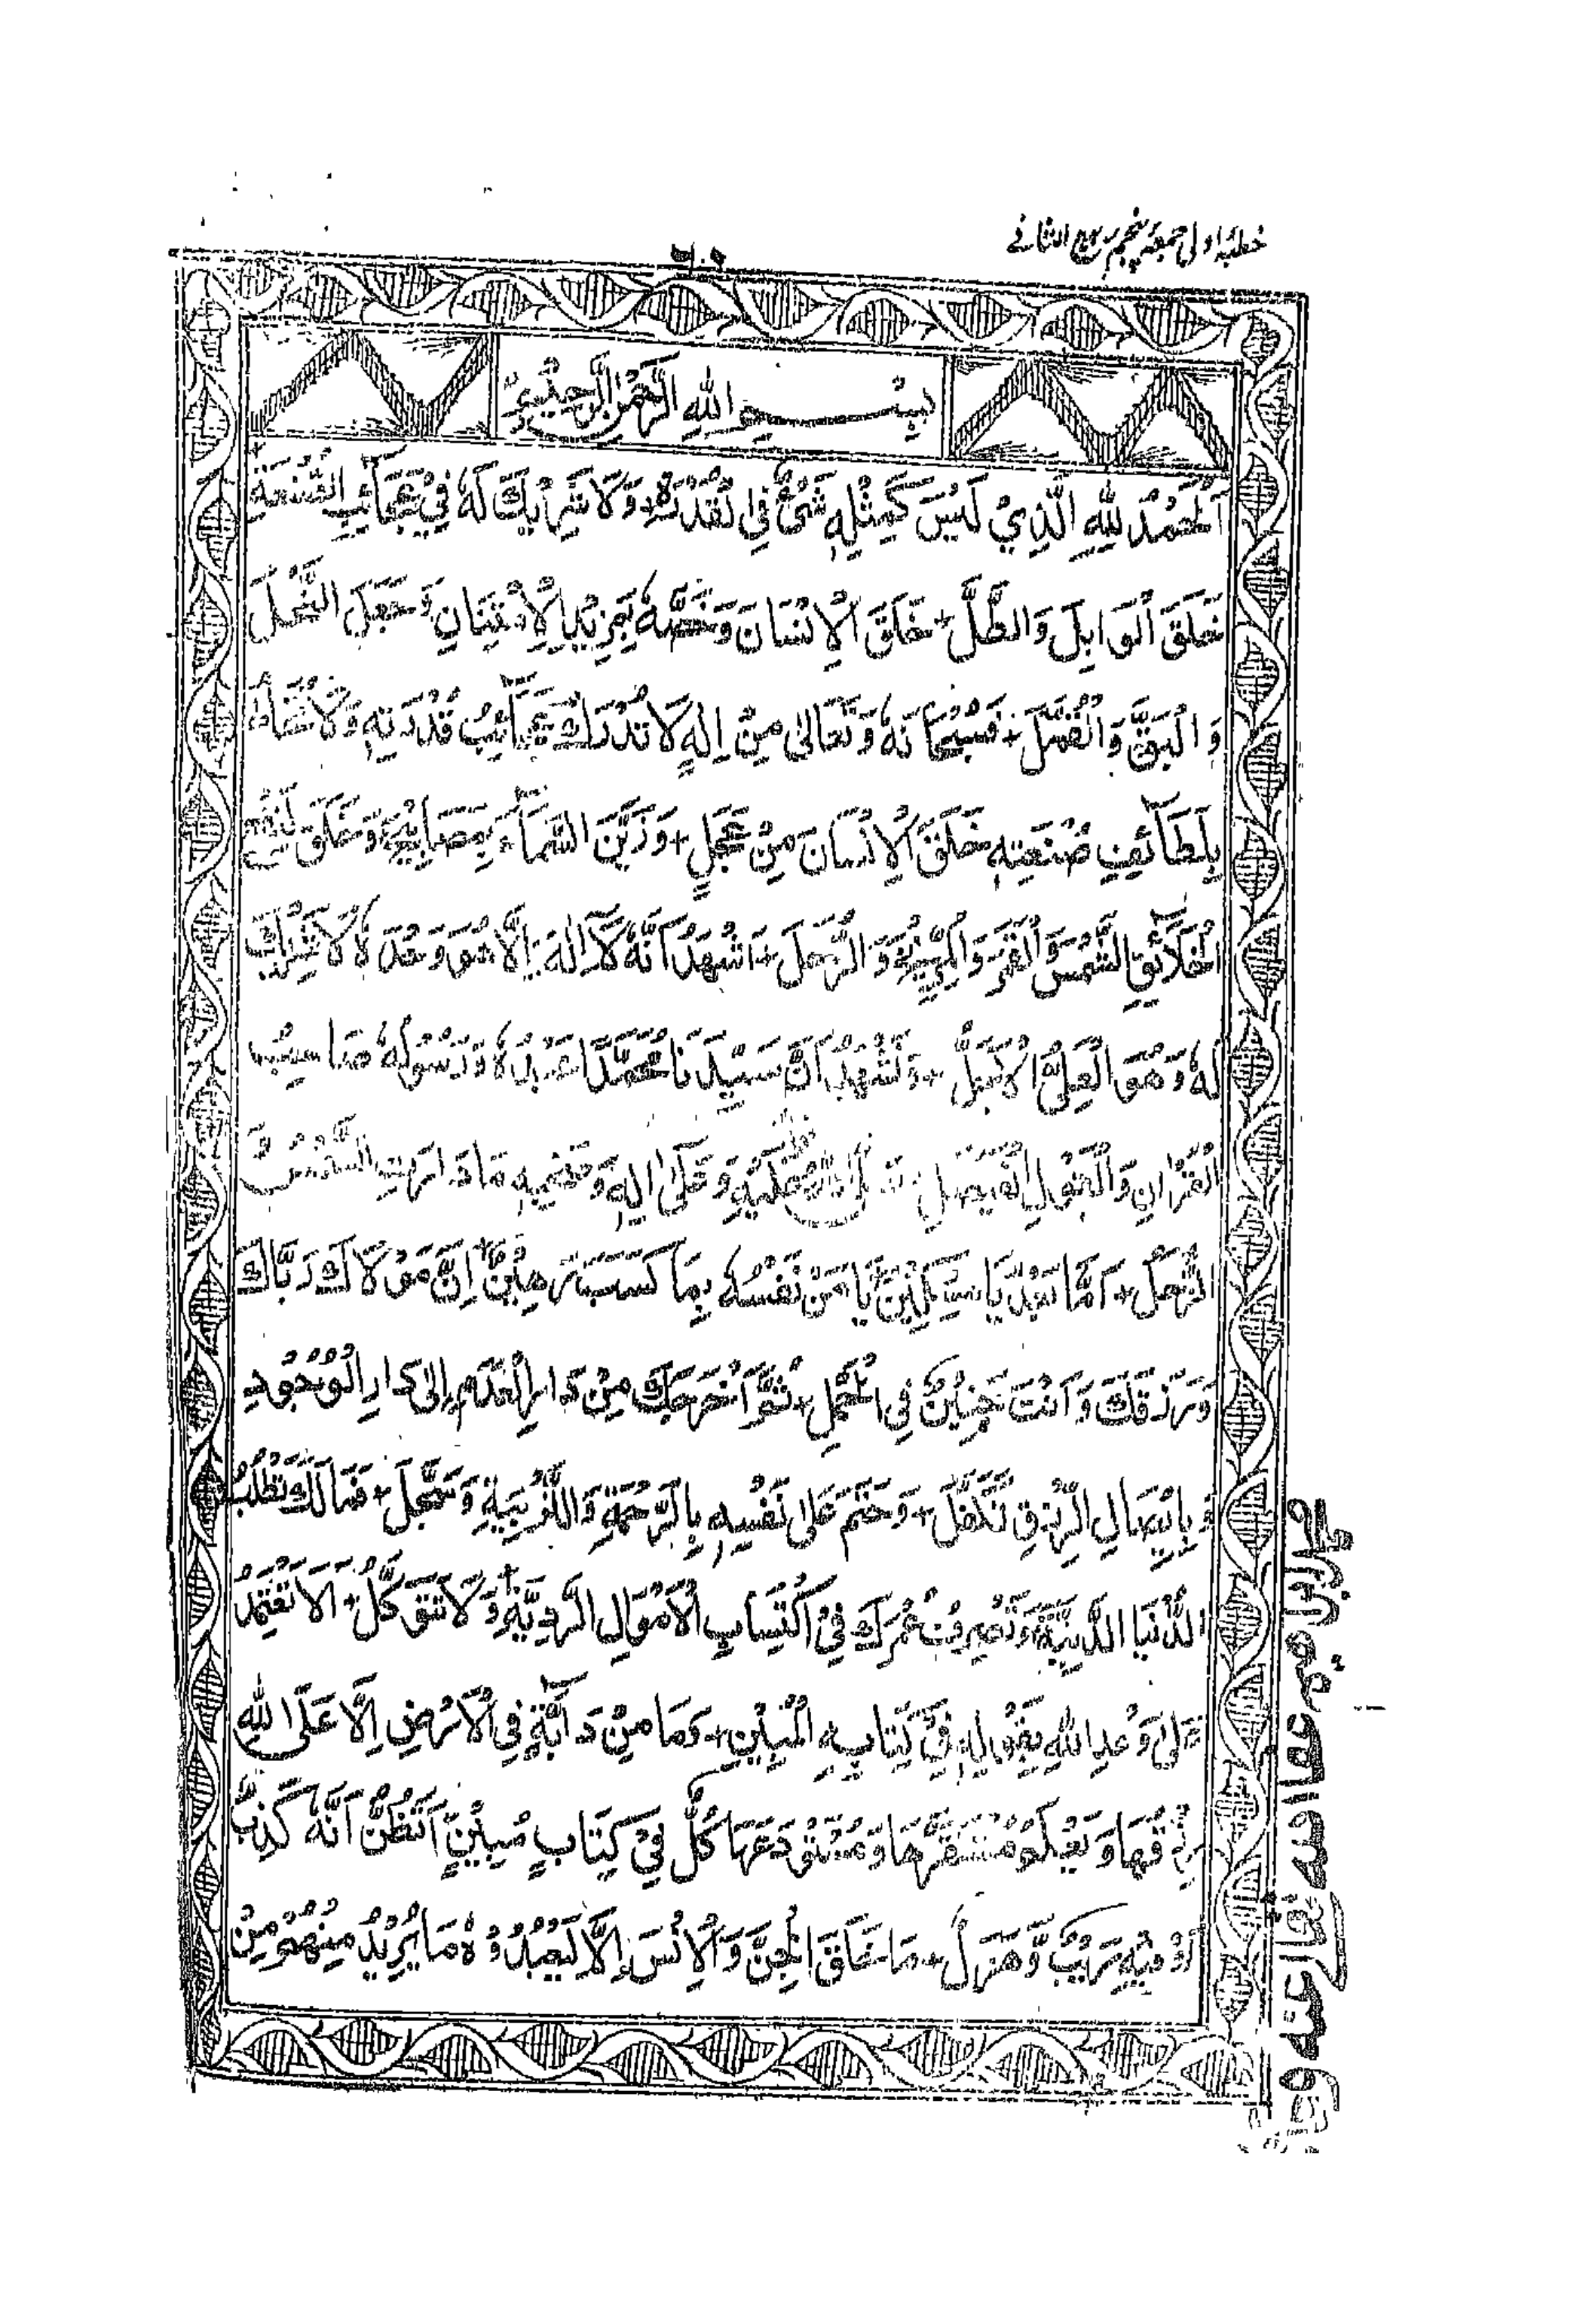 خطبۂ اولی جمعۂ پنجم ربیع الثانے
بِسْمِ اللهِ الرَّحْمٰنِ الرَّحِيْمِ
اَلْحَمْدُ لِلّٰهِ الَّذِيْ لَيْسَ كَمِثْلِهٖ شَيْءٌ فِي تَقَدُّسِهٖ وَلَا شَرِيْكَ لَهٗ فِيْ عَجَآئِبِ الصَّنْعَةِ
خَلَقَ الْوَابِلَ وَالطَّلَّ + خَلَقَ الْاِنْسَانَ وَخَصَّهٗ بِمَزِيْدِ الْاِمْتِنَانِ وَجَعَلَ النَّحْلَ
وَالْبَقَّ وَالْقُمَّلَ + فَسُبْحَانَهٗ وَتَعَالٰى مِنْ اِلٰهٍ لَا تُدْرَكُ عَجَآئِبُ قُدْرَتِهٖ وَلَا
بِلَطَآئِفِ صَنْعَتِهٖ خَلَقَ الْاِنْسَانَ مِنْ عَجَلٍ + وَزَيَّنَ السَّمَآءَ بِمَصَابِيْحَ وَخَلَقَ
الْخَلَآئِقِ الشَّمْسَ وَالْقَمَرَ وَالْمِرِّيْخَ وَالزُّحَلَ + اَشْهَدُ اَنَّهٗ لَآ اِلٰهَ اِلَّا هُوَ وَحْدَهٗ لَا شَرِيْكَ
لَهٗ وَهُوَ الْعَلِيُّ الْاَجَلُّ + وَنَشْهَدُ اَنَّ سَيِّدَنَا مُحَمَّدًا عَبْدُهٗ وَرَسُوْلُهٗ صَاحِبُ
الْقُرْاٰنِ وَالْقَوْلِ الْفَيْصَلِ صَلَّى اللهُ عَلَيْهِ وَعَلٰى اٰلِهٖ وَصَحْبِهٖ مَا دَارَتِ
الزُّحَلُ + اَمَّا بَعْدُ يَا مِسْكِيْنُ يَا مَنْ نَفْسُهٗ بِمَا كَسَبَتْ رَهِيْنٌ اِنَّ مَوْلَاكَ رَبَّاكَ
وَرَزَقَكَ وَاَنْتَ جَنِيْنٌ فِي الْحَمْلِ + ثُمَّ اَخْرَجَكَ مِنْ دَارِ الْعَدَمِ اِلٰى دَارِ الْوُجُوْدِ
وَبِاِيْصَالِ الرِّزْقِ تَكَفَّلَ + وَحَتَمَ عَلٰى نَفْسِهٖ بِالرَّحْمَةِ وَالتَّرْبِيَةِ وَسَجَّلَ + فَمَا لَكَ تَطْلُبُ
الدُّنْيَا الدَّنِيَّةَ وَتَصْرِفُ عُمْرَكَ فِيْ اكْتِسَابِ الْاَمْوَالِ الرَّدِيَّةِ وَلَا تَتَوَكَّلُ + اَلَا تَعْتَمِدُ
عَلٰى وَعْدِ اللهِ بِقَوْلِهٖ فِيْ كِتَابِهِ الْمُبِيْنِ + وَمَا مِنْ دَآبَّةٍ فِي الْاَرْضِ اِلَّا عَلَى اللهِ
رِزْقُهَا وَيَعْلَمُ مُسْتَقَرَّهَا وَمُسْتَوْدَعَهَا كُلٌّ فِيْ كِتَابٍ مُبِيْنٍ اَتَظُنُّ اَنَّهٗ كَذِبٌ
اَوْ فِيْهِ رَيْبٌ وَّهَزْلٌ + مَا خَلَقَ الْجِنَّ وَالْاِنْسَ اِلَّا لِيَعْبُدُوْهُ مَا يُرِيْدُ مِنْهُمْ مِنْ